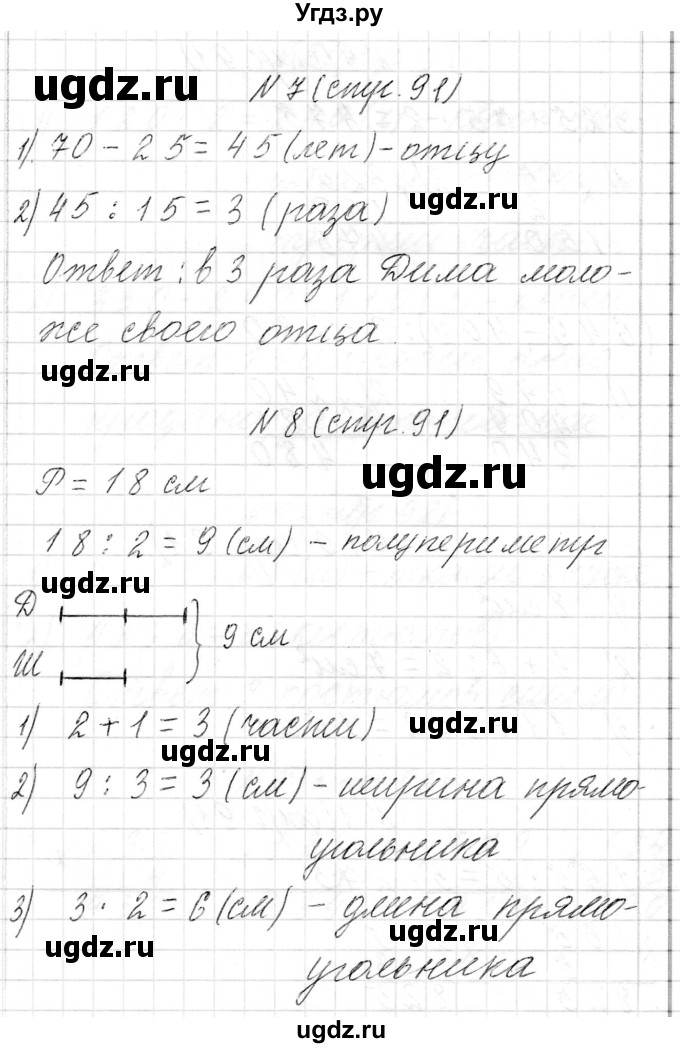 Угдз.ру
ugdz.ru N 7 (стр. 91)
1) 70 - 25 = 45 (лет) - отцу
2) 45 : 15 = 3 (раза) ugdz.ru
Ответ: в 3 раза Дима моло-
же своего отца.
ugdz.ru
N 8 (стр. 91)
ugdz.ru
P = 18 см
18 : 2 = 9 (см) - полупериметр
ugdz.ru
Д
9 см
Ш
1) 2 + 1 = 3 (части) ugdz.ru
ugdz.ru
2) 9 : 3 = 3 (см) - ширина прямо-
угольника
3) 3 · 2 = 6 (см) - длина прямо-
ugdz.ru ugdz.ru
угольника
ugdz.ru